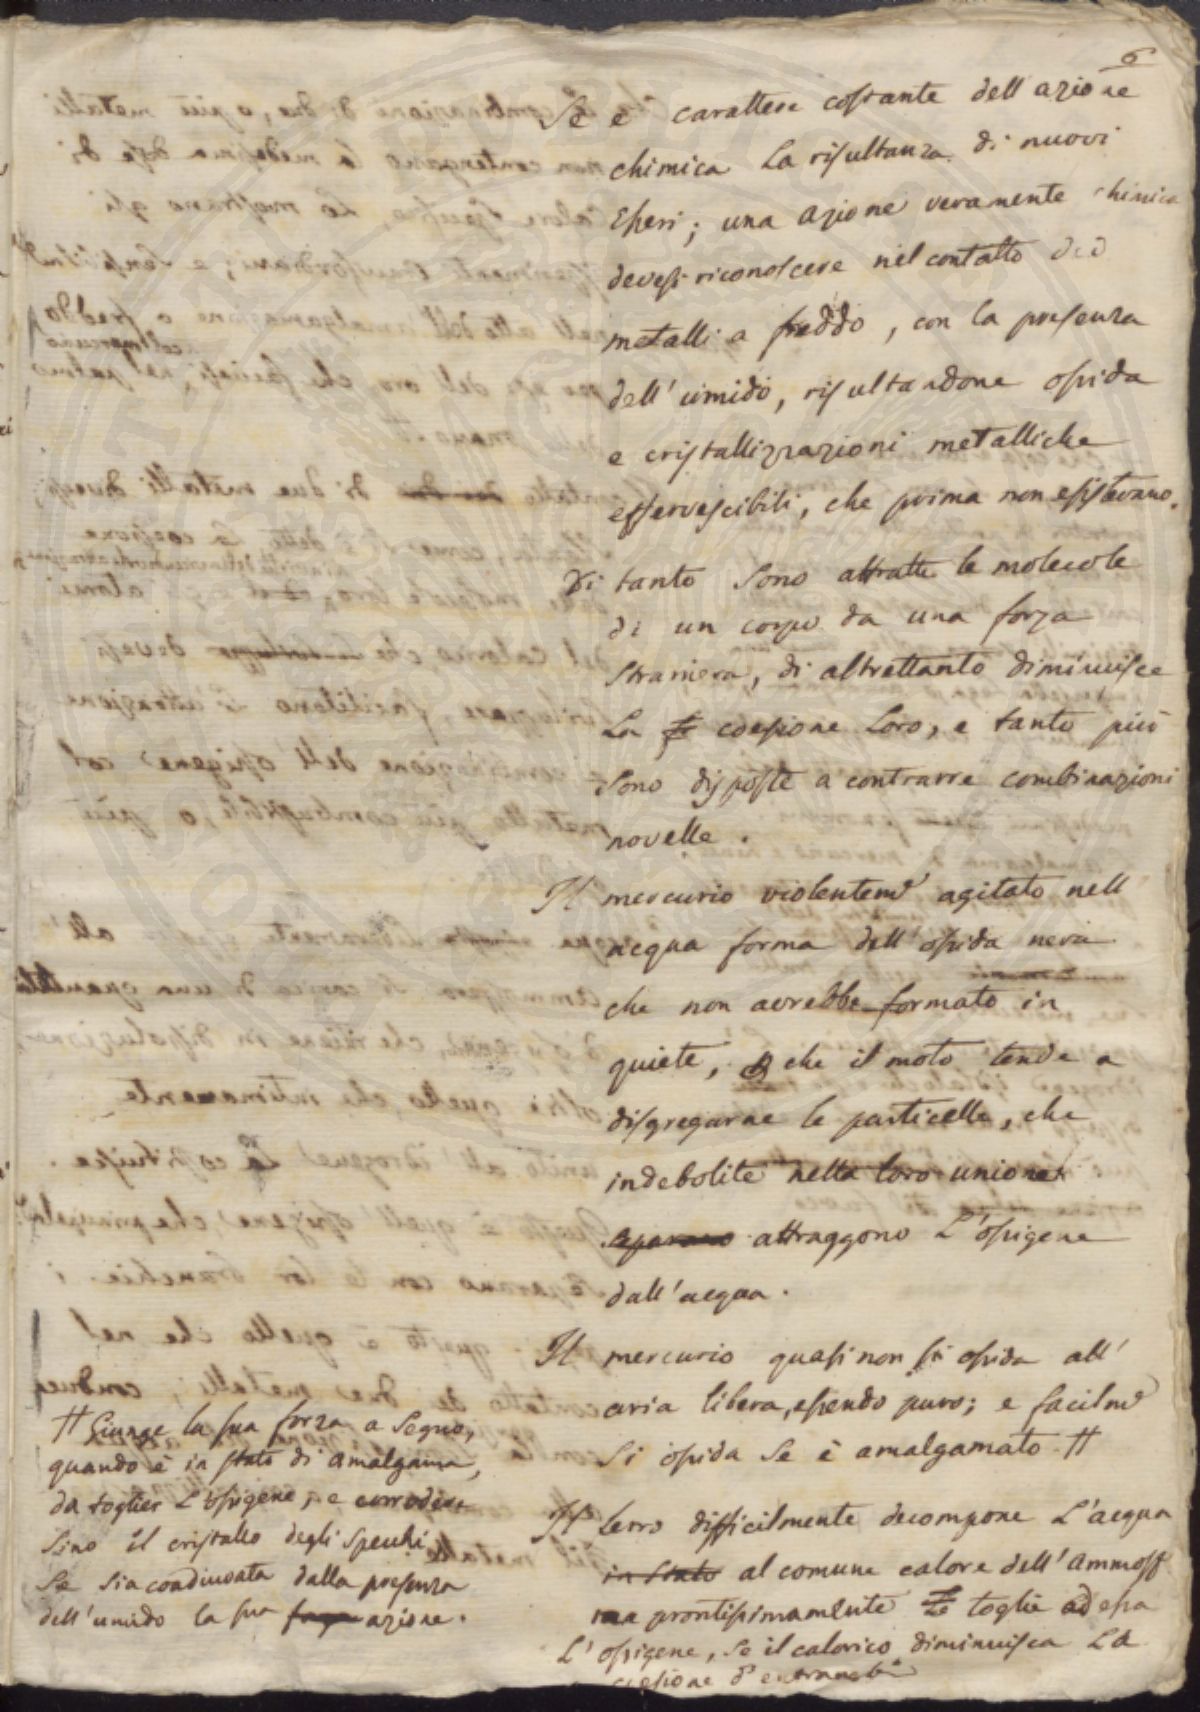 6
Se è carattere costante dell'azione
chimica la risultanza di nuovi
Esseri; una azione veramente chimica
devesi riconoscere nel contatto dei
metalli a freddo, con la presenza
dell'umido, risultandone ossida
e cristallizzazioni metalliche
effervescibili, che prima non esistevano.
Di tanto sono attratte le molecole
di un corpo da una forza
straniera, di altrettanto diminuisce
La coesione Loro, e tanto più
sono disposte a contrarre combinazioni
novelle.
Il mercurio violentem.e agitato nell
acqua forma dell'ossida nera
che non avrebbe formato in
quiete, che il moto tende a
disgregarne le particelle, che
indebolite nella loro unione
separano attraggono L'ossigene
dall'acqua.
Il mercurio quasi non si ossida all'
aria libera, essendo puro; e facilm.e
si ossida se è amalgamato #
Il ferro difficilmente decompone L'acqua
in stato al comune calore dell'ammosf
ma prontissimamente Le toglie ad essa
L'ossigene, se il calorico diminuisca La
coesione d'entrambi
# Giunge la sua forza a segno,
quando è in stato di amalgama,
da toglier L'ossigene, e corrodere
sino il cristallo degli specchi
se sia coadiuvata dalla presenza
dell'umido la sua forza azione.